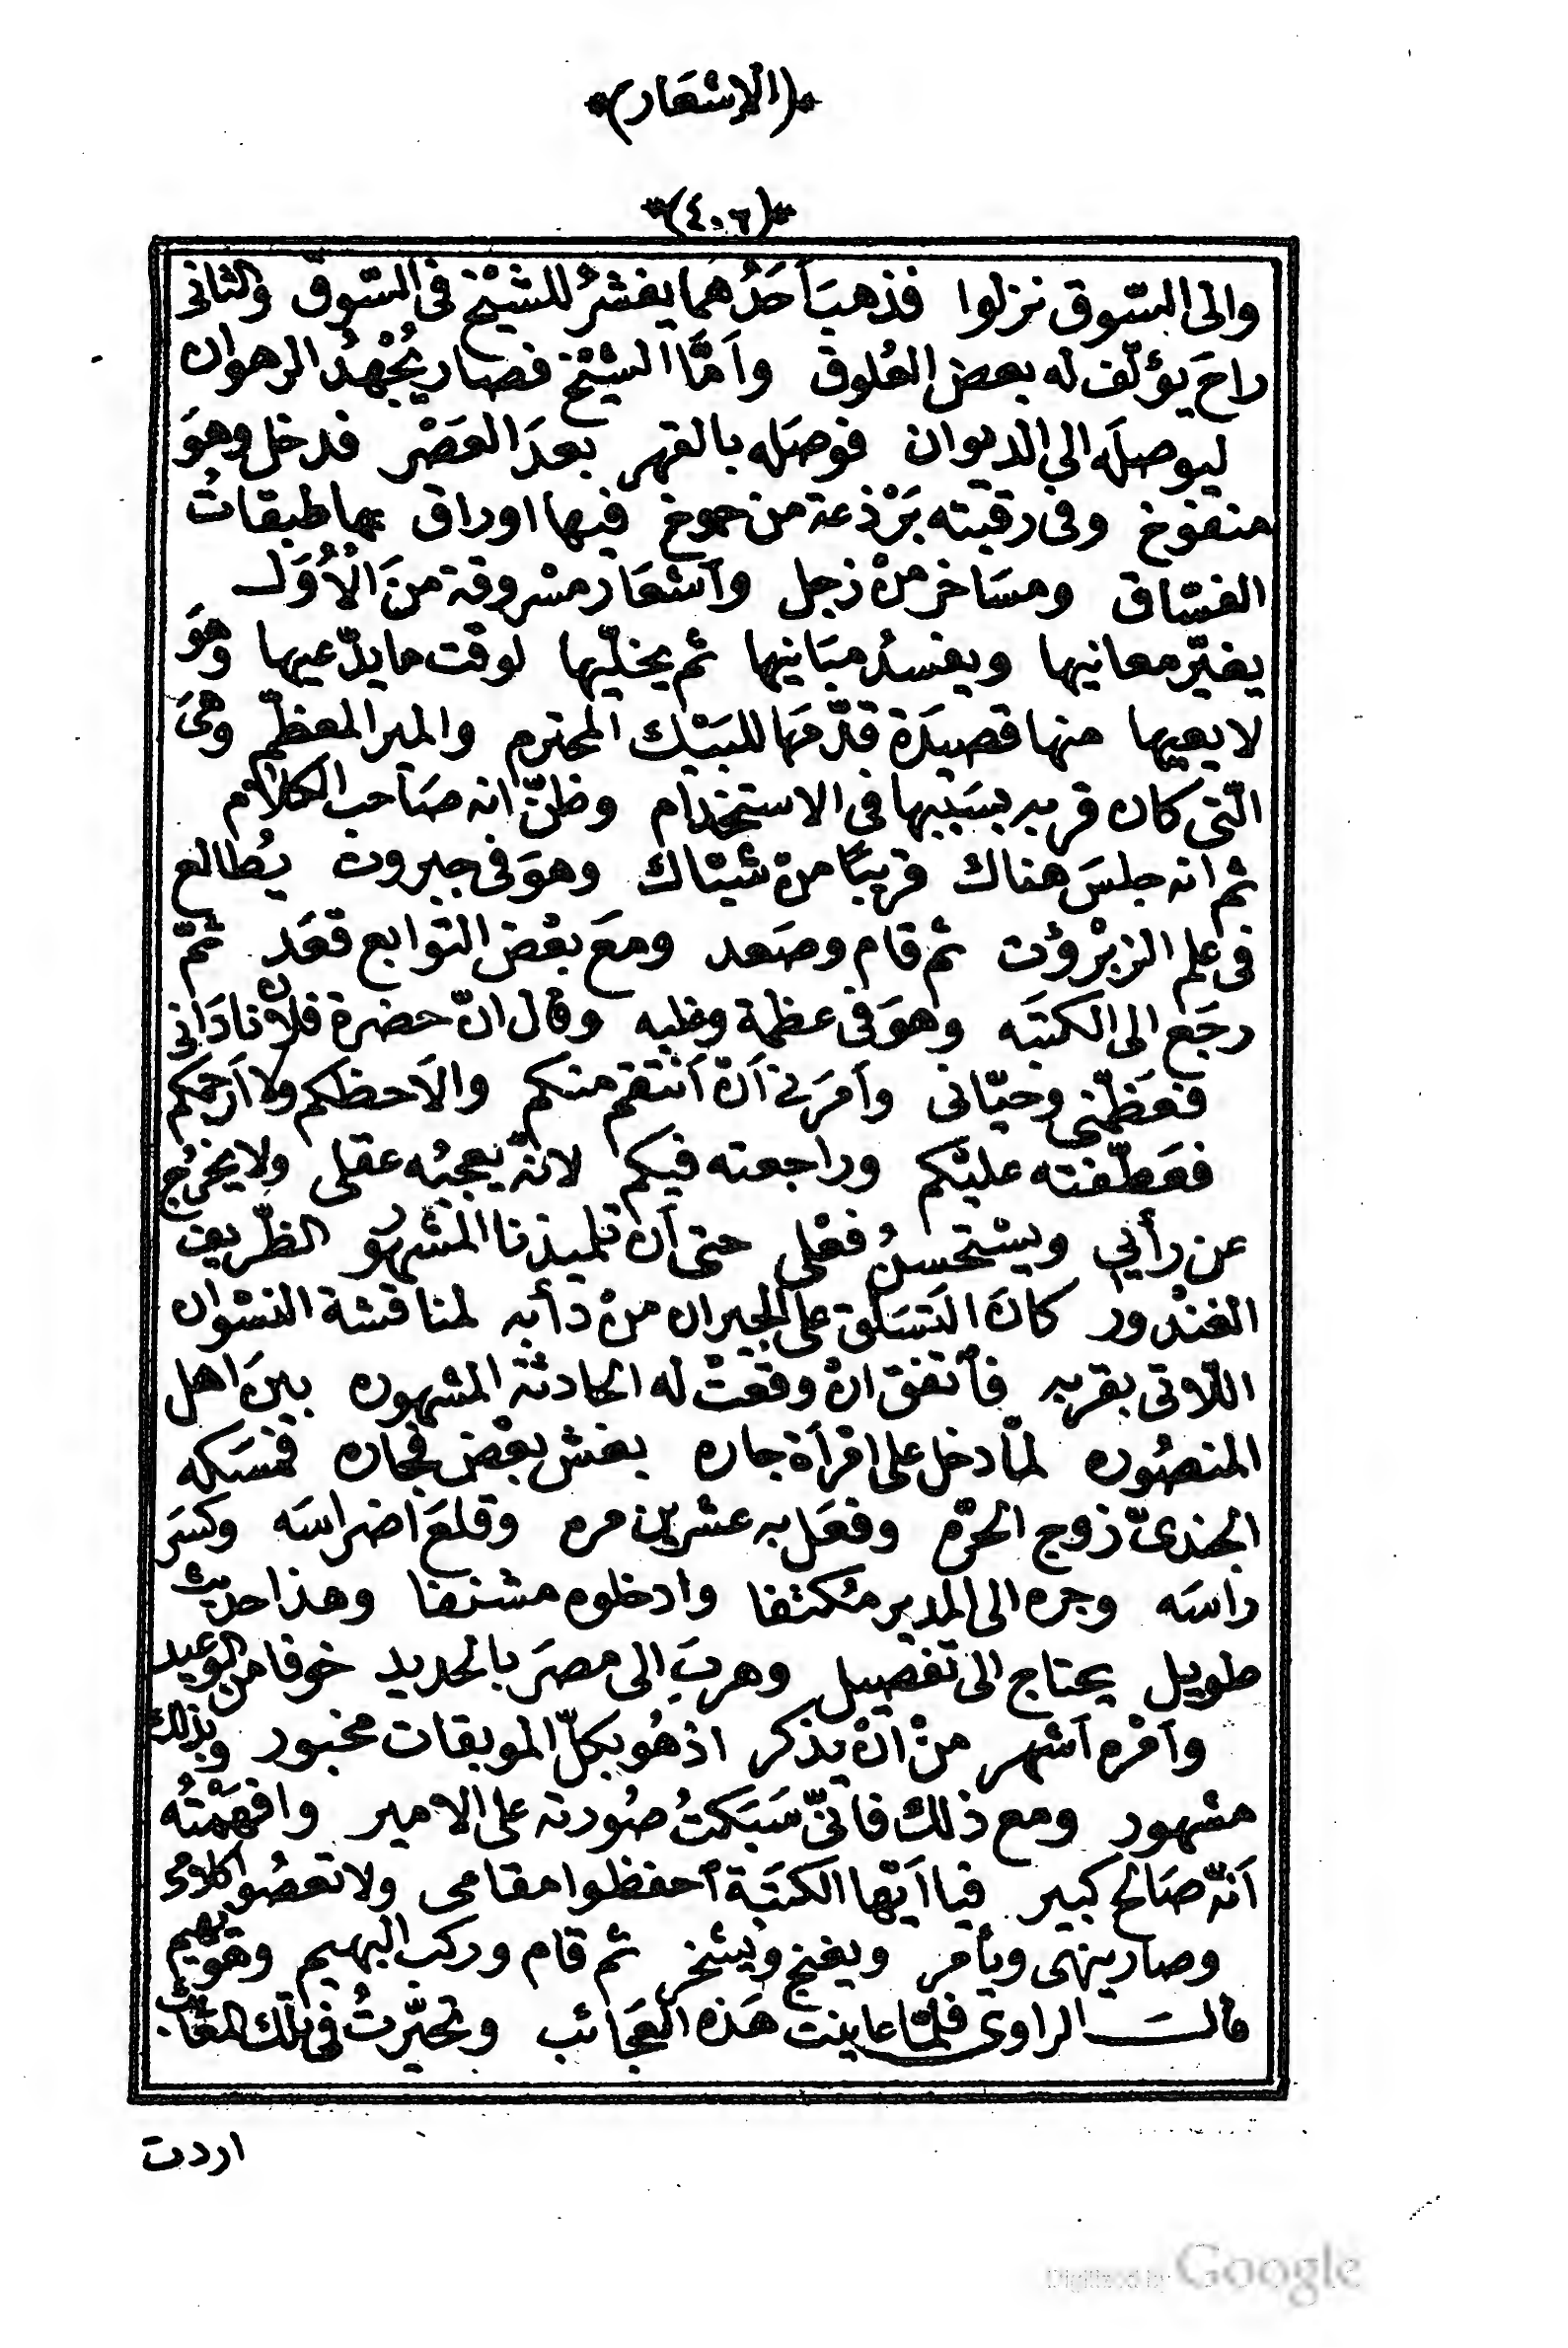 (الاشعار)
(٤٠٦)
والى السّوق نزلوا فذهبَ أحَدُهمَا يفشرُ للشيْخ فى السّوق والثانى
راحَ يؤلّف له بعض العُلوق وَاَمَّا الشيْخ فصار يُجْهدُ الرهوان
ليوصلَه الى الديوان فوصَله بالقهر بعدَ العَصْر فدخل وهوَ
منفوخ وفى رقبته بَرْذعة من جوخ فيها اوراق بها طبقاتُ
الفسّاق ومسَاخر منْ زجل وَاَشعَار مسْروقة منَ الْاُوَل
يغيّر معانيها ويفسدُ مبَانيها ثم يخلّيها لوقت ما يدّعيها وهوَ
لا يعيها منها قصيدَة قدّمَها للبَيْك المحترم والمير المعظّم وهىَ
الّتى كان قربه بسَببها فى الاستخدام وظنّ انه صَاحب الكلام
ثم انه جلسَ هناك قريبًا منْ شبّاك وهوَ فى جبروت يُطالع
فى علم الزبْرؤت ثم قام وصَعد ومعَ بعْض التوابع قعَد ثمّ
رجَع الى الكتبَه وهوَ فى عظمة وغلبه وقال انّ حضرة فلان نادَانى
فعَظّمنى وحيّانى وأمَرَنى اَنْ اَنتقم منكم والَاحظكم ولا اَرحمكم
فعَطّفته عليْكم وراجعته فيكم لانّه يعجبُه عقلى ولا يخرُج
عن رأيى ويسْتحسنُ فعْلى حتى اَن تلميذنا المشهوُر الظّريف
الغنْدور كانَ التَسَلّق على الجيران منْ دأبه لمناقشة النسْوان
اللّاتى بقربه فأتفق انْ وقعَتْ له الحادثة المشهوره بينَ اهل
المنصُوره لمّا دخل على امْرأة جاره بغش بعْض فجاره فمسَكه
الجندىّ زوج الحرّه وفعَل به عشرين مره وقلعَ اضراسَه وكسَر
راسَه وجره الى المدير مُكتفا وادخلوه مشنفا وهذا حديث
طويل يحتاج الى تفصيل وهربَ الى مصرَ بالحديد خوفا من الوعيد
وأمْره اَشهر منْ انْ يذكر اذ هُو بكلّ الموبقات مخبور وبذلك
مشهور ومع ذلك فانّى سَبَكتُ صُورته على الامير وافهمْتُه
اَنّه صَالح كبير فيا اَيّها الكتَبة أحفظوا مقامى ولا تعصُوا كلامى
وصار ينهى ويأمر ويغنج ويشخر ثم قام وركب البهيم وهوَ يهيم
قالَ الراوى فلمّا عاينت هَذه العَجَائب وتحيّرتُ فى تلك المعَائب
اردت
Digitized by Google